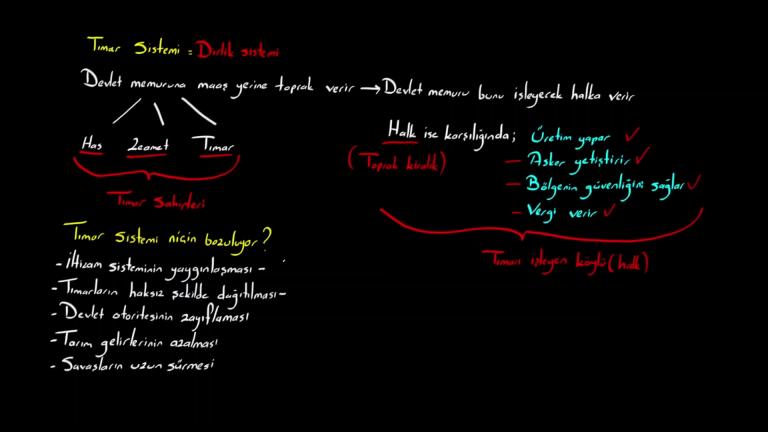 Tımar Sistemi = Dirlik sistemi
Devlet memuruna maaş yerine toprak verir → Devlet memuru bunu işleyerek halka verir
Has Zeamet Tımar
Tımar Sahipleri
Halk ise karşılığında;
(Toprak kiralık)
Üretim yapar ✓
- Asker yetiştirir ✓
- Bölgenin güvenliğini sağlar ✓
- Vergi verir ✓
Tımarı işleyen köylü (halk)
Tımar sistemi niçin bozuluyor?
- İltizam sisteminin yaygınlaşması -
- Tımarların haksız şekilde dağıtılması -
- Devlet otoritesinin zayıflaması
- Tarım gelirlerinin azalması
- Savaşların uzun sürmesi